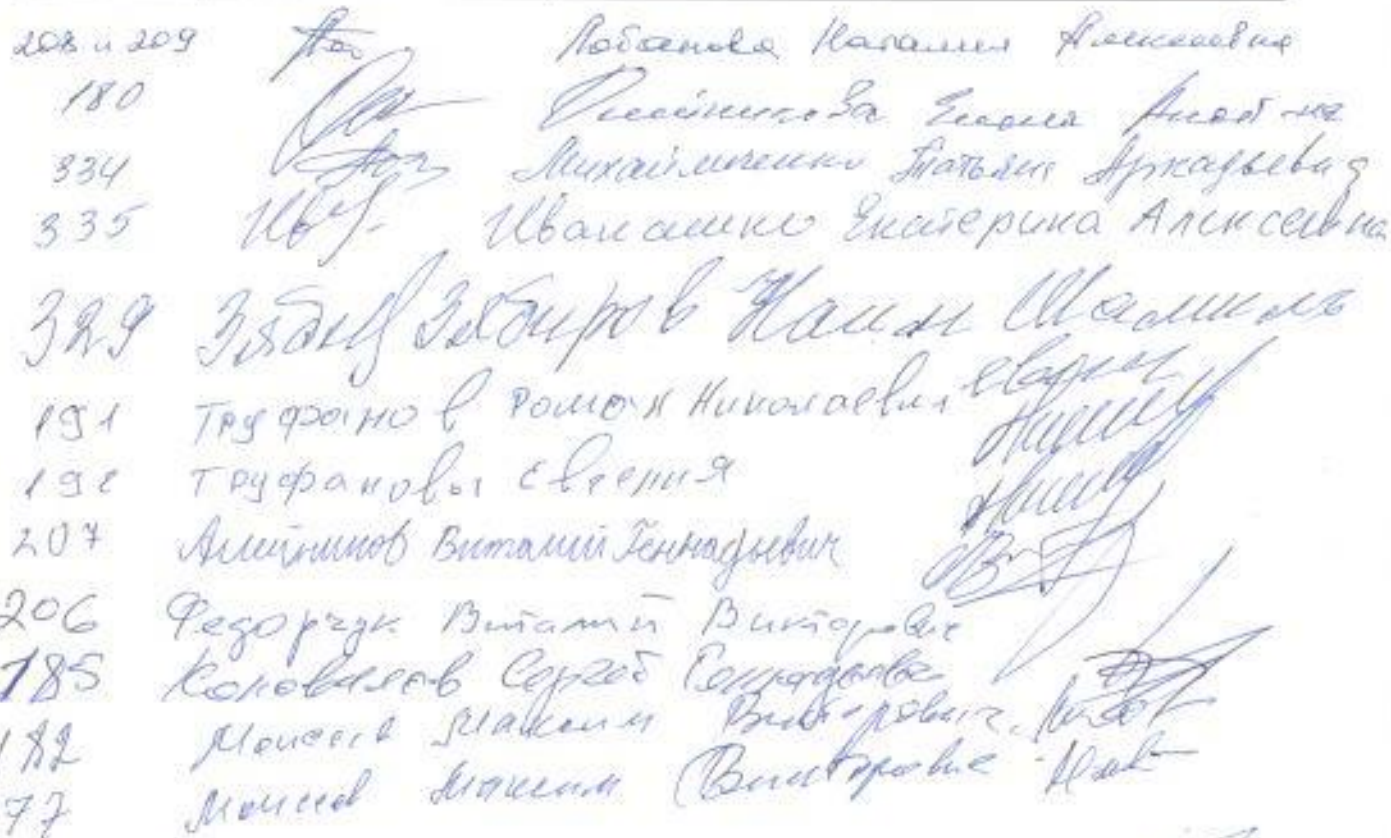 208 и 209 Лобанова Наталия Алексеевна
180 Олейникова Елена
334 Михайличенко Татьяна Аркадьевна
335 Иванашко Екатерина Алексеевна
329 Зябиров Наил Шамиль
евич
191 Труфанов Роман Николаевич
192 Труфанова Евгения
207 Алейников Виталий Геннадьевич
206 Федорчук Виталий Викторович
185 Коновалов Сергей Геннадьевич
182 Моисеев Максим Викторович
77 Моисеев Максим Викторович